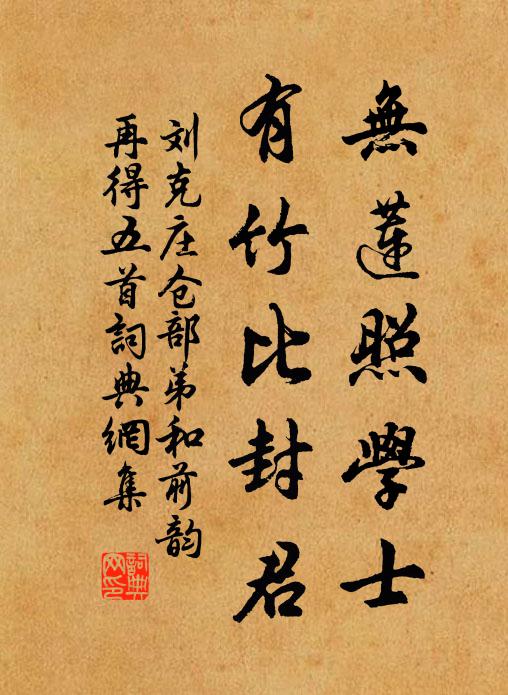 無蓮照學士
有竹比封君
刘克庄仓部弟和前韵
再得五首詞典網集
詞典
网印